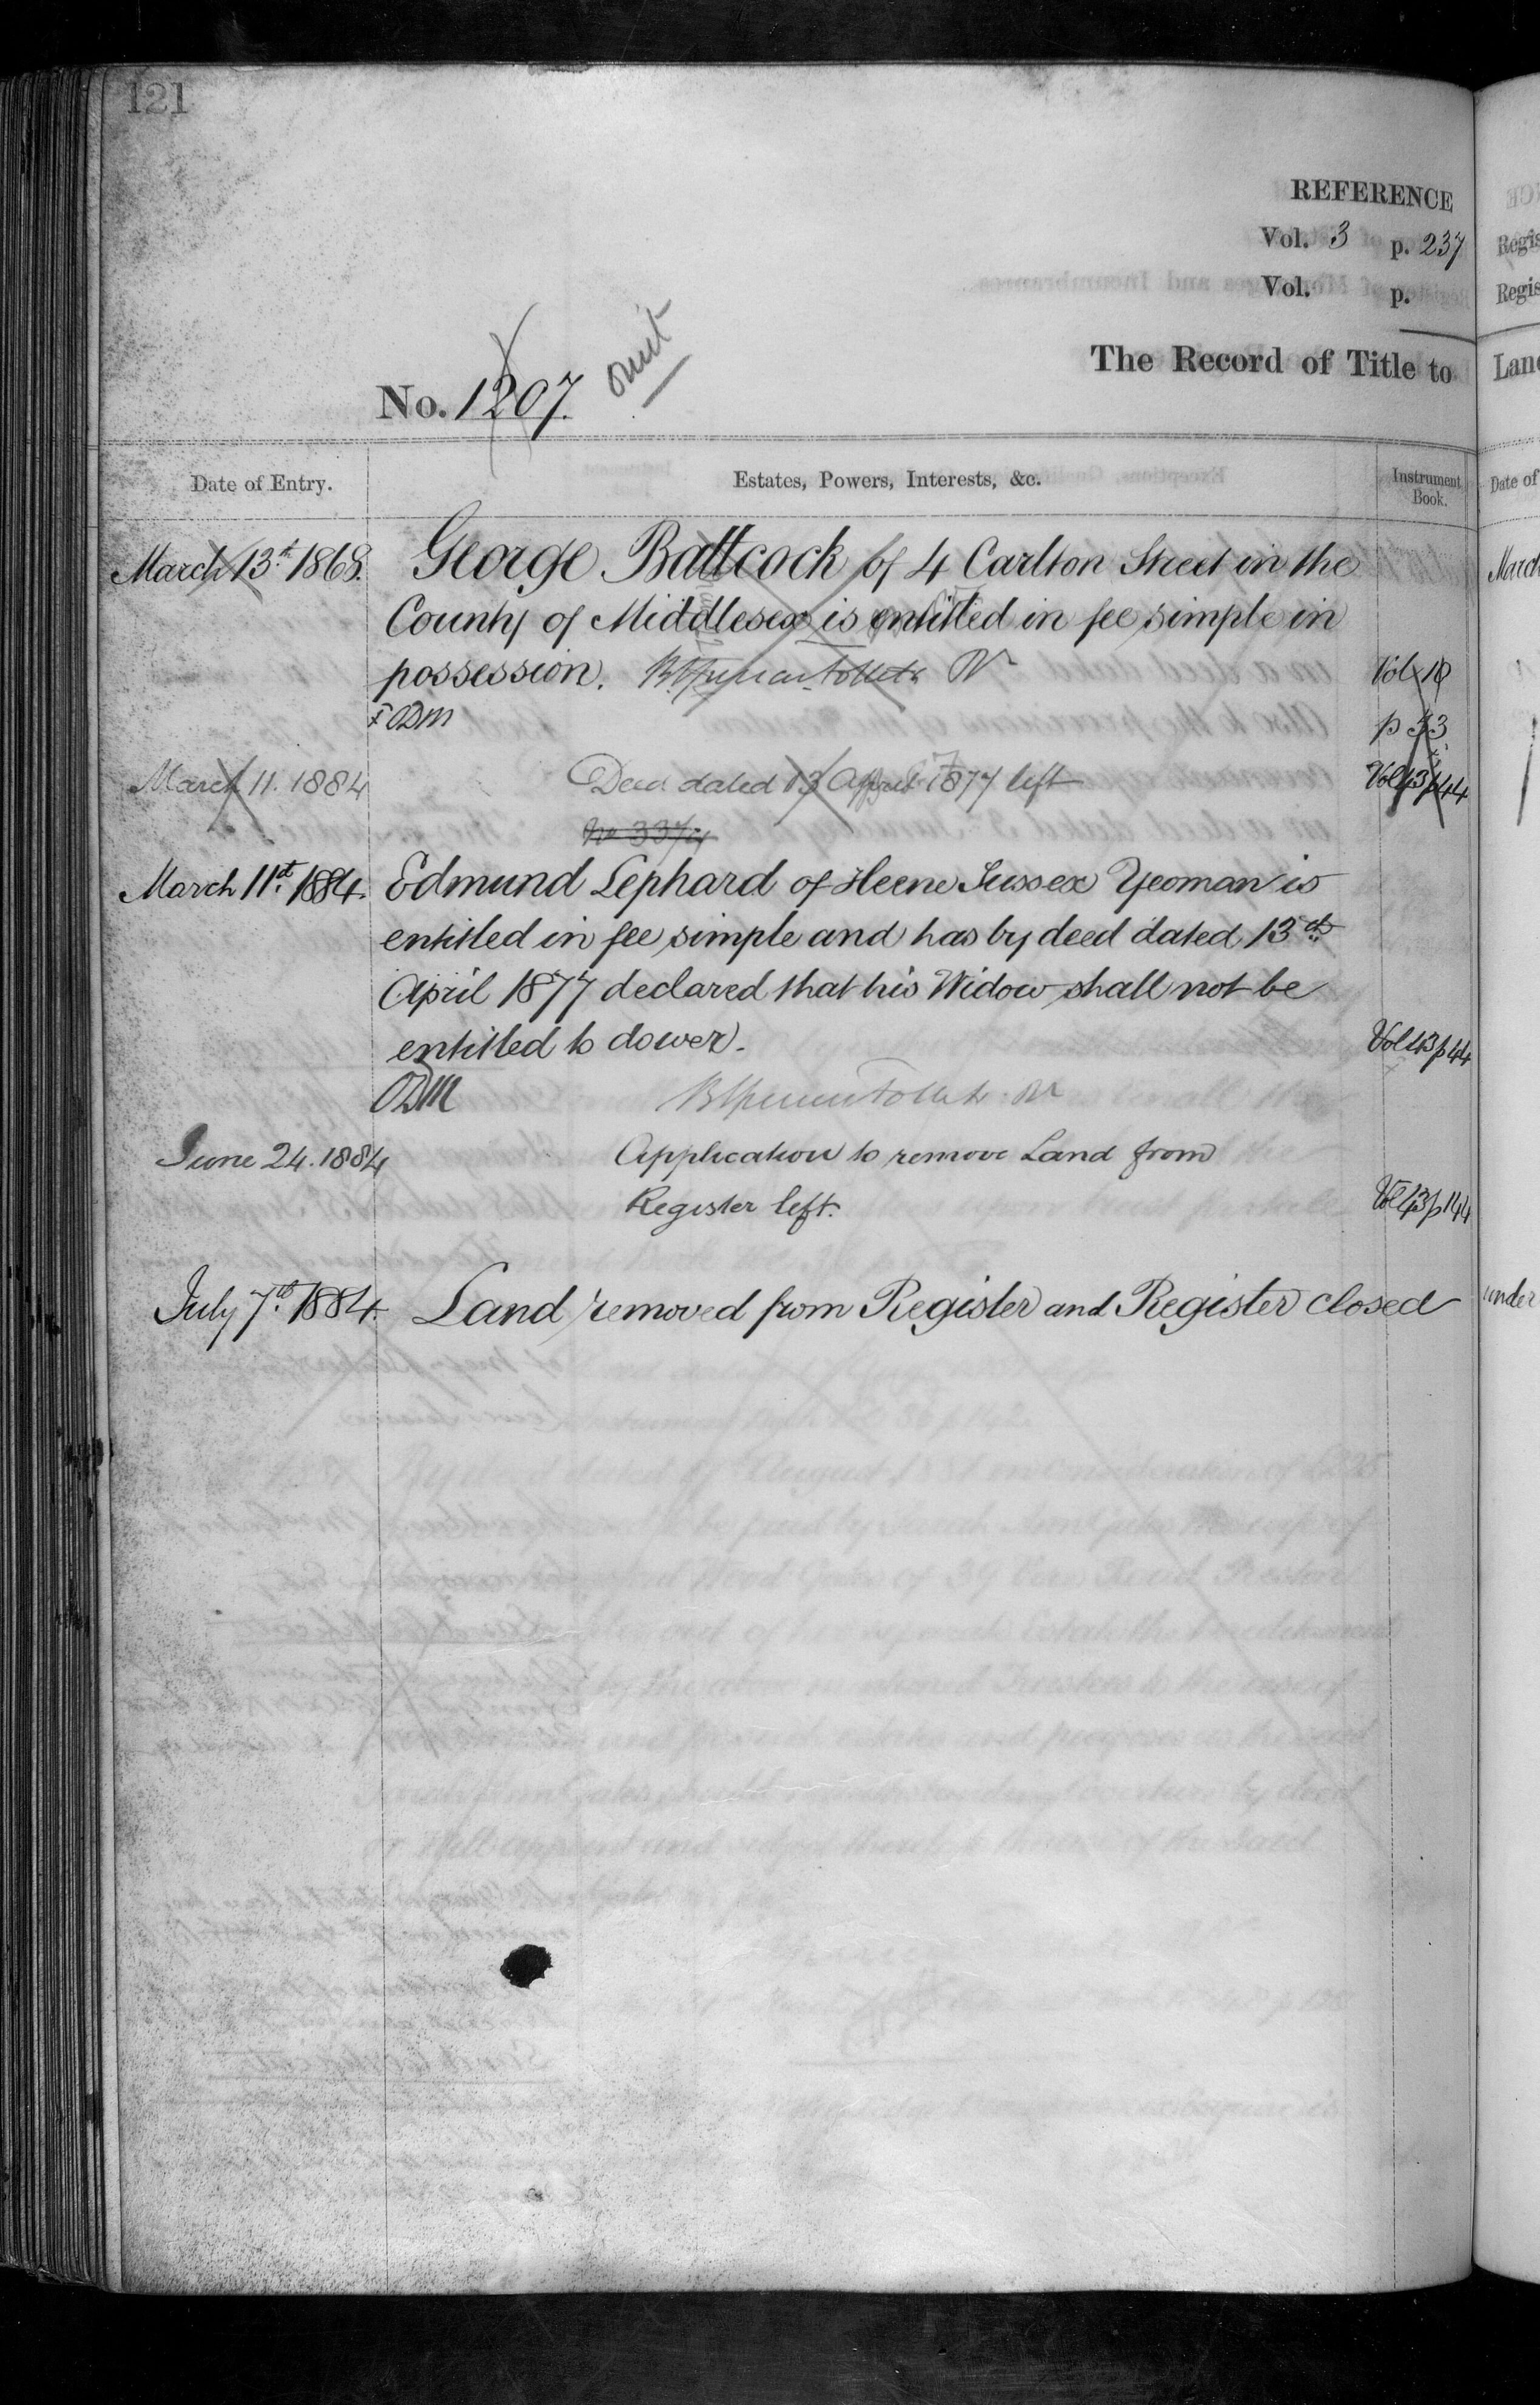 121
REFERENCE
Vol. 3 p. 237
Vol. p.
The Record of Title to
No. 1207. omit
Date of Entry. Estates, Powers, Interests, &c. Instrument Book.
March 13th 1868. George Battcock of 4 Carlton Street in the
County of Middlesex is entitled in fee simple in
possession. Vol 10
p 33
March 11. 1884 Deed dated 13 April 1877 left Vol 43 p 44
March 11th 1884. Edmund Lephard of Heene Sussex Yeoman is
entitled in fee simple and has by deed dated 13th
April 1877 declared that his Widow shall not be
entitled to dower. Vol 43 p 44
June 24. 1884 Application to remove Land from
Register left. Vol 43 p 144
July 7th 1884. Land removed from Register and Register closed under